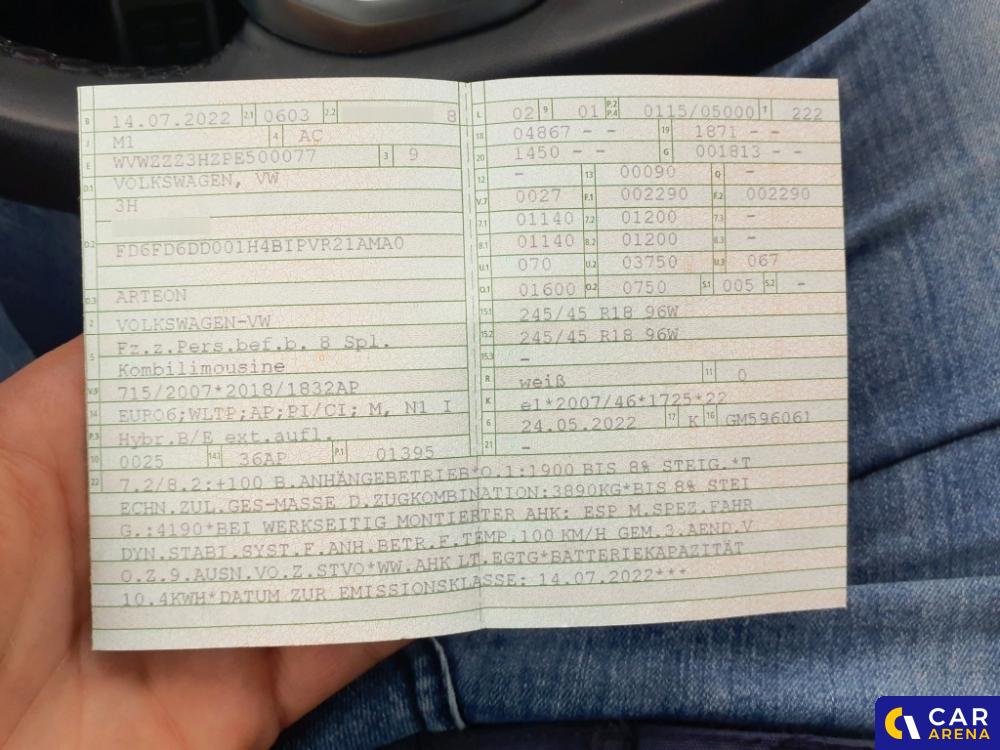 B 14.07.2022 2.1 0603 2.2 8
J M1 4 AC
E WVWZZZ3HZPE500077 3 9
D.1 VOLKSWAGEN, VW
3H
D.2 FD6FD6DD001H4BIPVR21AMA0
D.3 ARTEON
2 VOLKSWAGEN-VW
5 Fz.z.Pers.bef.b. 8 Spl.
Kombilimousine
V.9 715/2007*2018/1832AP
14 EURO6;WLTP;AP;PI/CI; M, N1 I
P.3 Hybr.B/E ext.aufl.
10 0025 14.1 36AP P.1 01395
L 02 9 01 P.2 P.4 0115/05000 T 222
18 04867 - - 19 1871 - -
20 1450 - - G 001813 - -
12 - 13 00090 Q -
V.7 0027 F.1 002290 F.2 002290
7.1 01140 7.2 01200 7.3 -
8.1 01140 8.2 01200 8.3 -
U.1 070 U.2 03750 U.3 067
O.1 01600 O.2 0750 S.1 005 S.2 -
15.1 245/45 R18 96W
15.2 245/45 R18 96W
15.3 -
R weiß 11 0
K e1*2007/46*1725*22
6 24.05.2022 17 K 16 GM596061
21 -
22 7.2/8.2:+100 B.ANHÄNGEBETRIEB*O.1:1900 BIS 8% STEIG.*T
ECHN.ZUL.GES-MASSE D.ZUGKOMBINATION:3890KG*BIS 8% STEI
G.:4190*BEI WERKSEITIG MONTIERTER AHK: ESP M.SPEZ.FAHR
DYN.STABI.SYST.F.ANH.BETR.F.TEMP.100 KM/H GEM.3.AEND.V
O.Z.9.AUSN.VO.Z.STVO*WW.AHK LT.EGTG*BATTERIEKAPAZITÄT
10.4KWH*DATUM ZUR EMISSIONSKLASSE: 14.07.2022***
CAR
ARENA